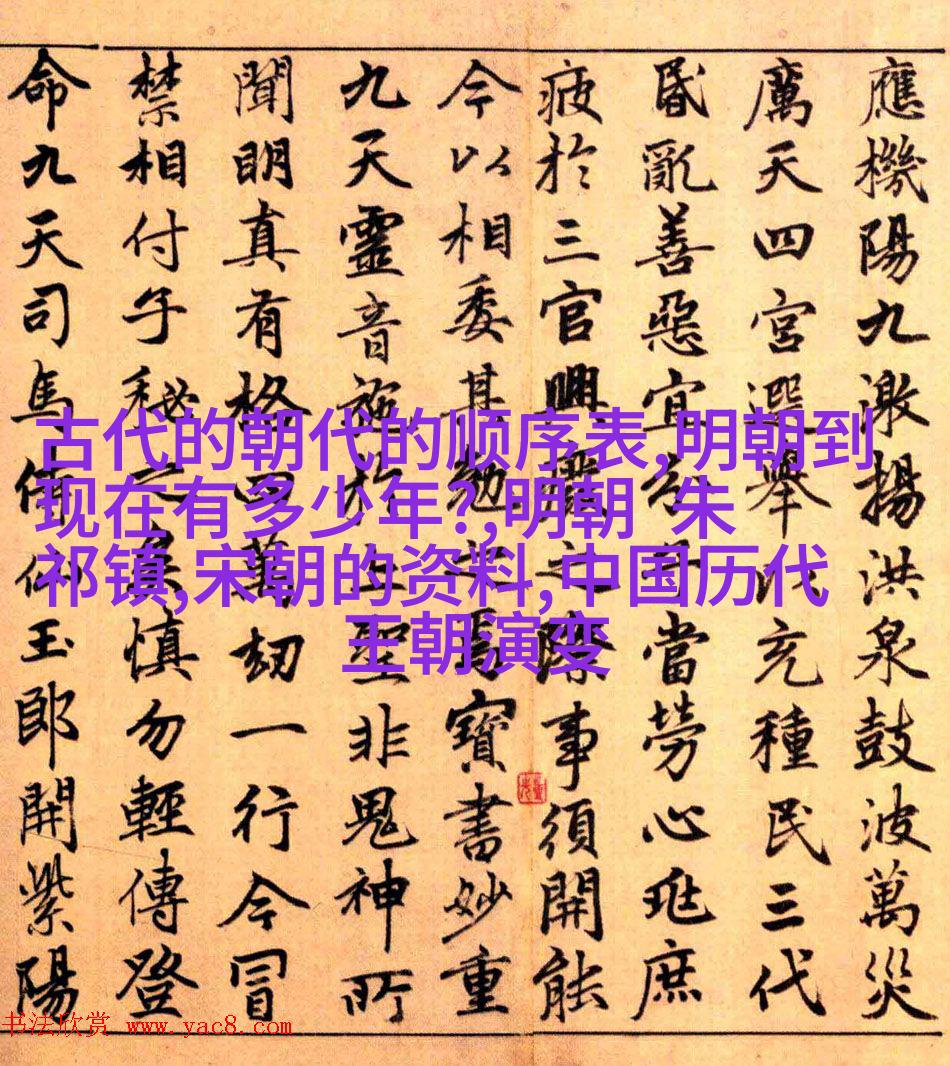 應機陽九激揚洪泉鼓波萬災
厲天四宮選舉充種民三代
昏亂善惡宜分子當勞心庶
疲於三官興廢之際事須開能
今以相委其勉之焉寶書妙重
九天靈音施於上聖非鬼神所
聞明真有格四萬劫一行今冒
禁相付子秘之矣慎勿輕傳登
命九天司馬侍仙玉郎開紫陽
古代的朝代的顺序表,明朝到
现在有多少年?,明朝 朱
祁镇,宋朝的资料,中国历代
王朝演变
书法欣赏 www.yac8.com